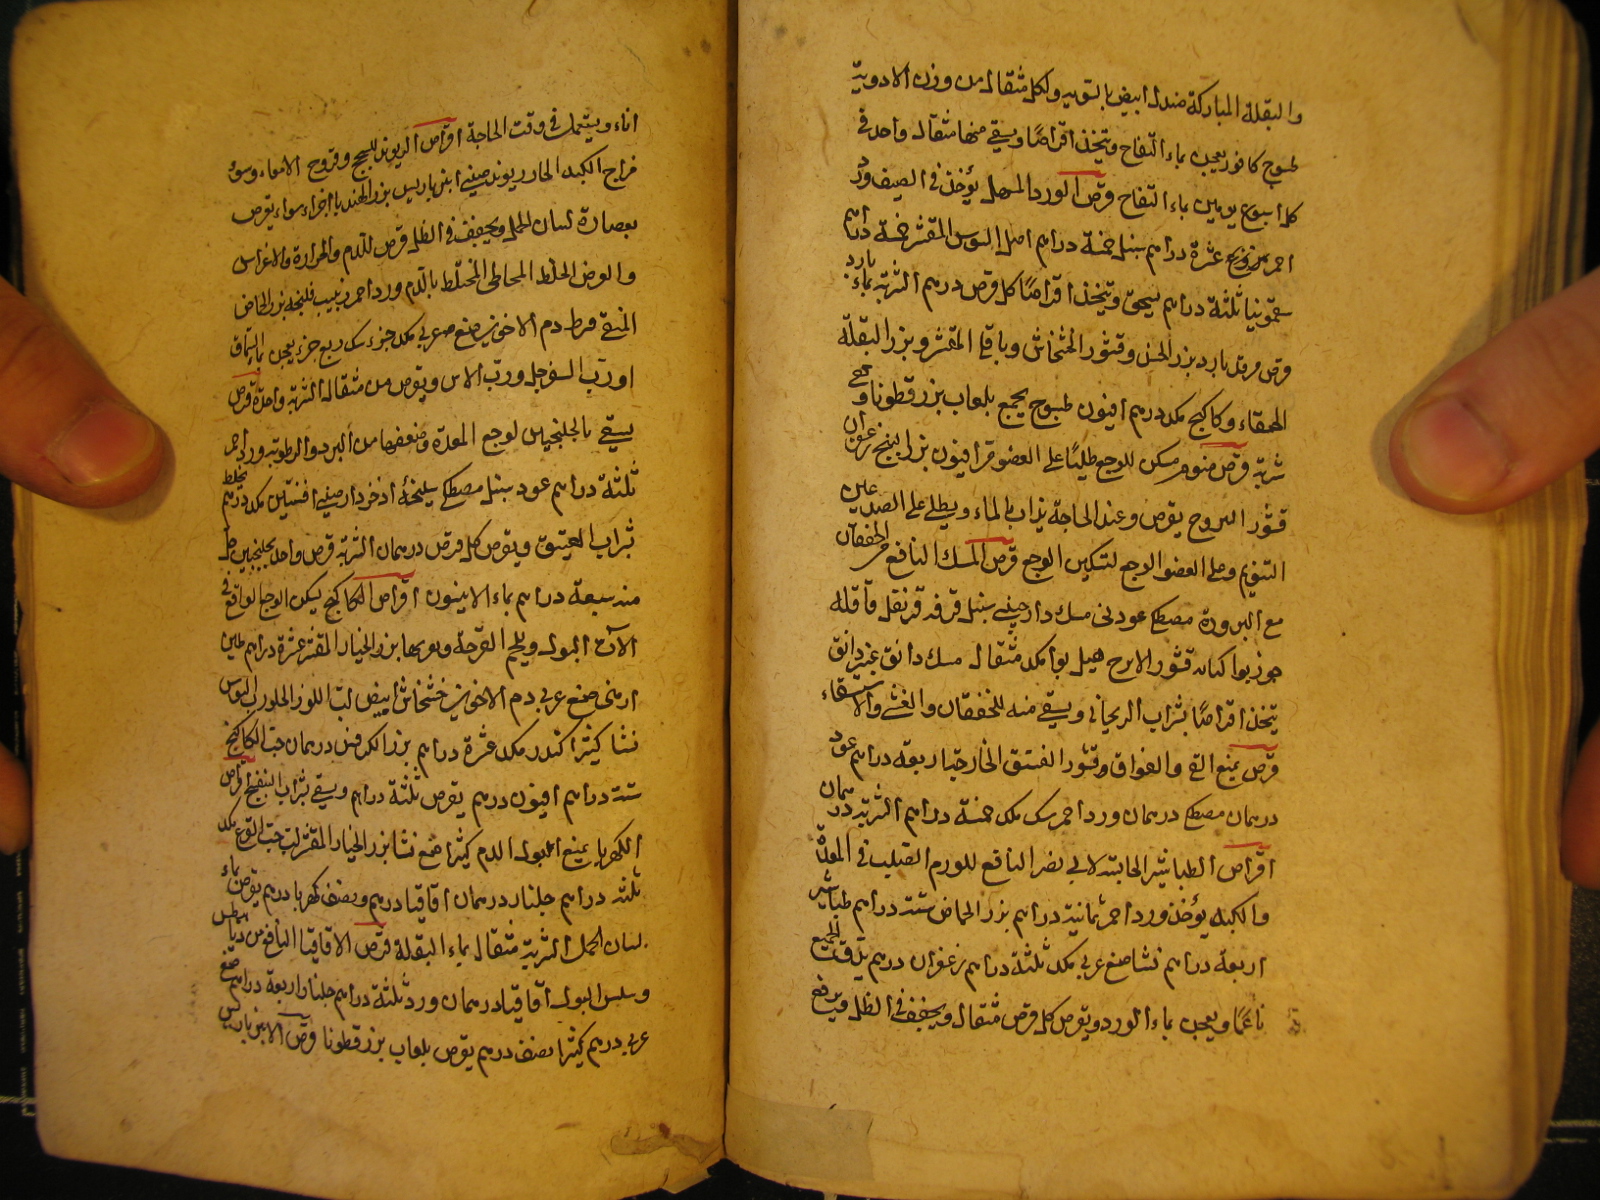 والبقلة المباركة صندل ابيض بالسويه ولكل مثقال من وزن الادوية
طسوج كافور يعجن بماء التفاح ويتخذ اقراصًا ويسقى منها مثقال واحد في
كل اسبوع يومين بماء التفاح قرص الورد المسهل يؤخذ في الصيف ورد
احمر منزوع عشرة دراهم سنبل خمسة دراهم اصل السوس المقشر خمسة دراهم
سقمونيا ثلثة دراهم يسحق ويتخذ اقراصًا كل قرص درهم الشربة بماء بارد
قرص مرقد بارد بزر الخس وقشور الخشخاش وباقلى المقشر وبزر البقلة
الحمقاء وكاكنج مكد درهم افيون طسوج يجمع بلعاب بزر قطونا وهى
شربة قرص منوم مسكن للوجع طليًا على العضو مر افيون بزر البنج زعفران
قشور اليبروح يقرص وعند الحاجة يذاب بالماء ويطلى على الصدغين
التنويم وعلى العضو الوجع لتسكين الوجع قرص المسك النافع من الخفقان
مع البرودة مصطكى عود نى مسك دارصينى سنبل قرفه قرنفل قاقله
جوزبوا كبابه قشور الاترج هيل بوا مكد مثقال مسك دانق عنبر دانق
يتخذ اقراصًا بشراب الريحانى ويسقى منه للخفقان والغشى والاستسقاء
قرص يمنع القى والفواق وقشور الفستق الخارجة اربعة دراهم عود
درهمان مصطكى درهمان ورد احمر سك مكد خمسة دراهم الشربة درهمان
اقراص الطباشير الحابسة لابى نصر النافع للورم الصلب في المعدة
والكبد يؤخذ ورد احمر ثمانية دراهم بزر الحماض ستة دراهم طباشير
اربعة دراهم نشا صمغ عربى مكد ثلثة دراهم زعفران درهم يدق الجميع
ناعمًا ويعجن بماء الورد ويقرص كل قرص مثقال ويجفف في الظل ويرفع في
اناء ويستعمل في وقت الحاجة اقراص الريوند للسحج وقروح الامعاء وسوء
مزاج الكبد الحار ريوند صينى انبرباريس بزر الهندبا اجزاء سواء يقرص
بعصارة لسان الحمل ويجفف في الظل قرص للدم والحرارة والاغراس
والعرض الخلط المخاطى المختلط بالدم ورد احمر زبيب بزر الحماض
المنقى قرط دم الاخوين صمغ عربى مكد جزء سك ربع جزء يعجن بماء السماق
او رب السفرجل ورب الاس ويقرص من مثقال الشربة واحدة قرص
يسقى بالجلنجبين لوجع المعدة وضعفها من البرد والرطوبة ورد احمر
ثلثة دراهم عود سنبل مصطكى سليخة اذخر دارصينى افسنتين مكد درهم يخلط
بشراب العتيق ويقرص كل قرص درهمان الشربة قرص واحد بجلنجبين
منه سبعة دراهم بماء الانيسون اقراص الكاكنج يسكن الوجع الواقع في
الآت البول ويلحم القرحة ويعريها بزر الخيار المقشر عشرة دراهم طين
ارمنى صمغ عربى دم الاخوين خشخاش ابيض لب اللوز الحلو رب السوس
نشا كثيرا كندر مكد عشرة دراهم بزر الكرفس درهمان حب الكاكنج
ستة دراهم افيون درهم يقرص ثلثة دراهم ويسقى بشراب البنفسج اقراص
الكهربا يمنع البول الدم كثيرا صمغ نشا بزر الخيار المقشر لب حب القرع مكد
ثلثه دراهم جلنار درهمان اقاقيا درهم ونصف كهربا درهم يقرص بماء
لسان الحمل الشربة مثقال بماء البقلة قرص الاقاقيا النافع من دیابیطس
وسلس البول اقاقيا درهمان ورد ثلثة دراهم جلنار اربعة دراهم صمغ
عربى درهم كثيرا نصف درهم يقرص بلعاب بزر قطونا قرص الانبرباريس